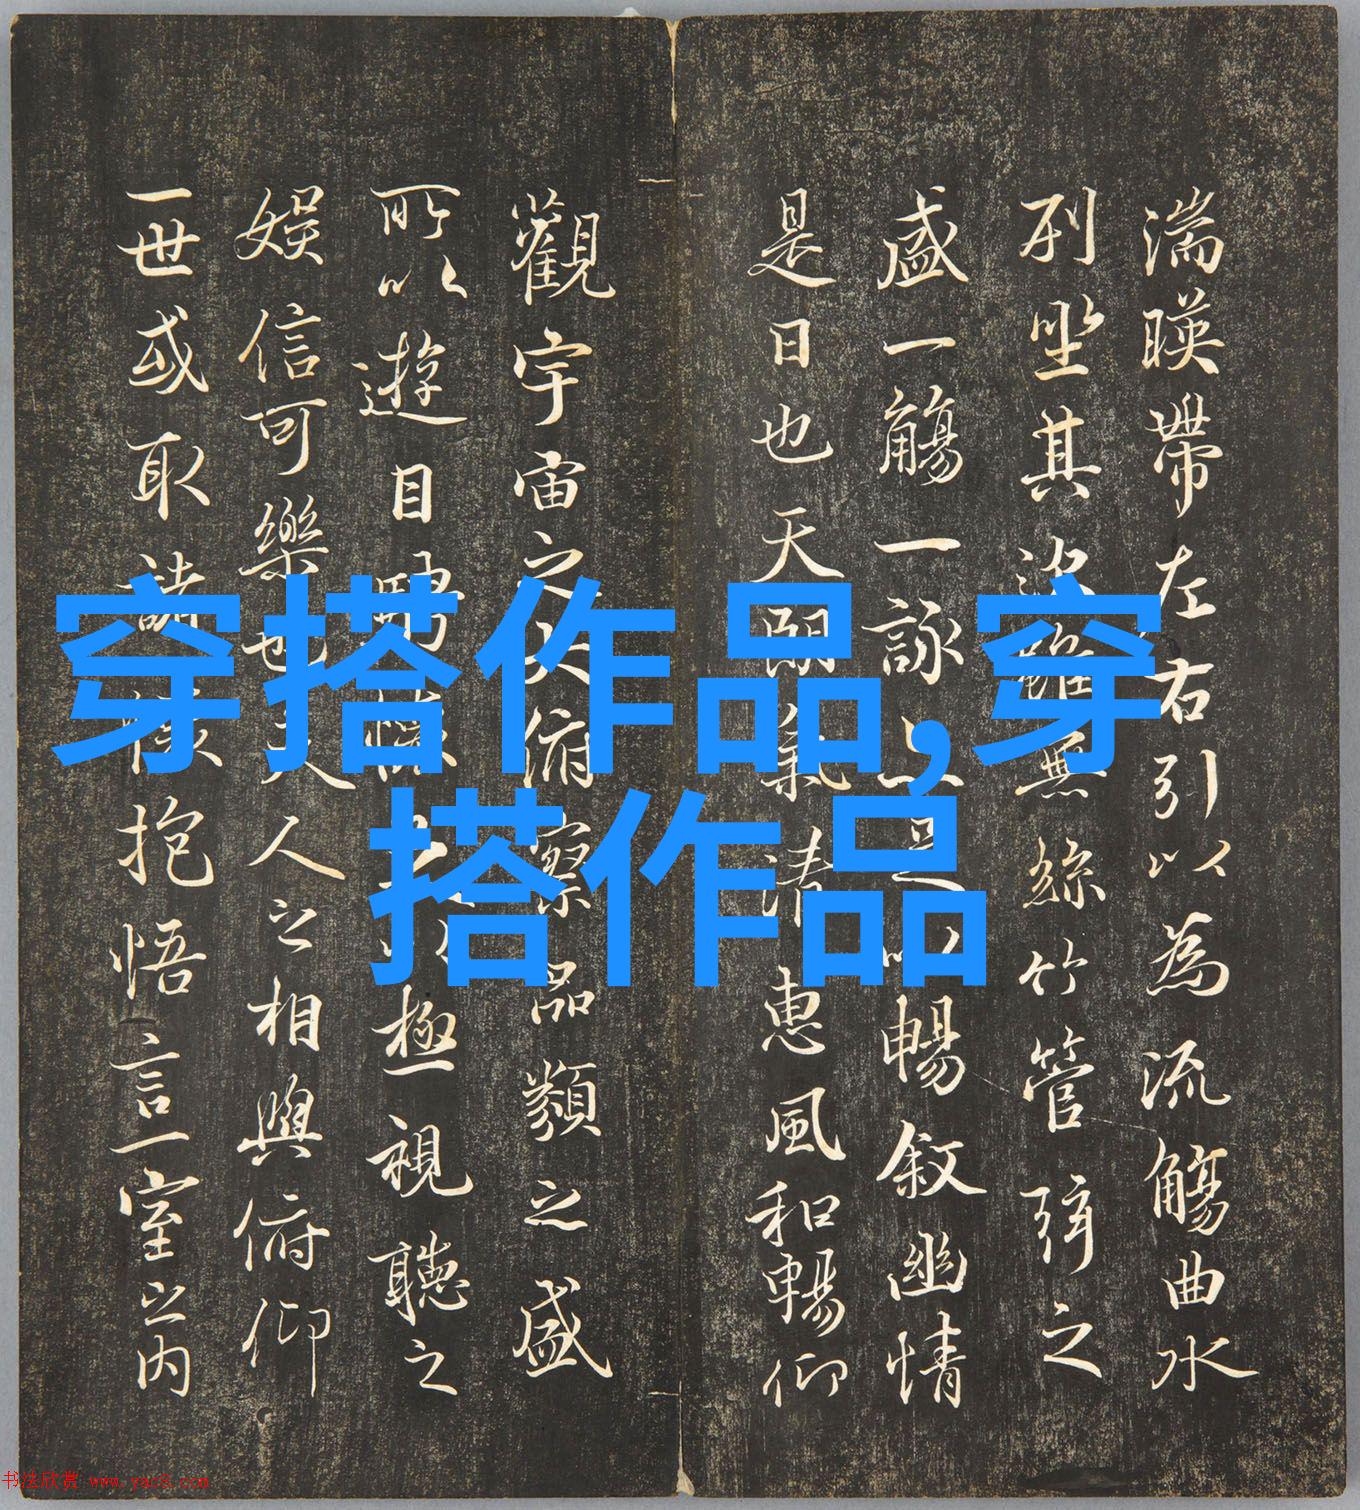 湍暎帶左右引以為流觴曲水
列坐其次雖無絲竹管弦之
盛一觴一詠暢叙幽情
是日也天朗氣清惠風和暢仰
觀宇宙之大俯察品類之盛
所以遊目騁懷極視聽之
娛信可樂也夫人之相與俯仰
一世或取諸懷抱悟言一室之内
穿搭作品,穿
搭作品
书法欣赏 www.yac8.com